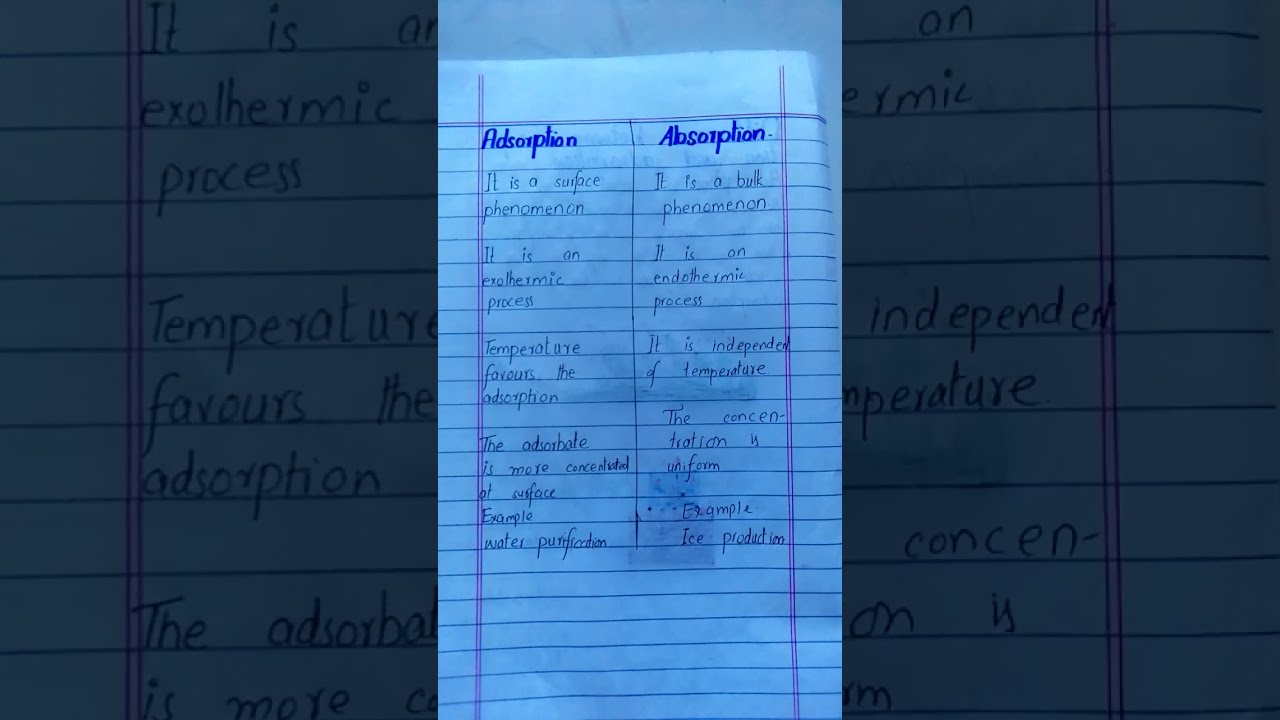 Adsorption Absorption.
It is a surface It is a bulk
phenomenon phenomenon.
It is an It is an
exolhermic endothermic
process process
Temperature It is independen
favours the of temperature.
adsorption
The concen-
The adsorbate tration is
is more concentrated uniform
at surface
Example Example.
water purification Ice production